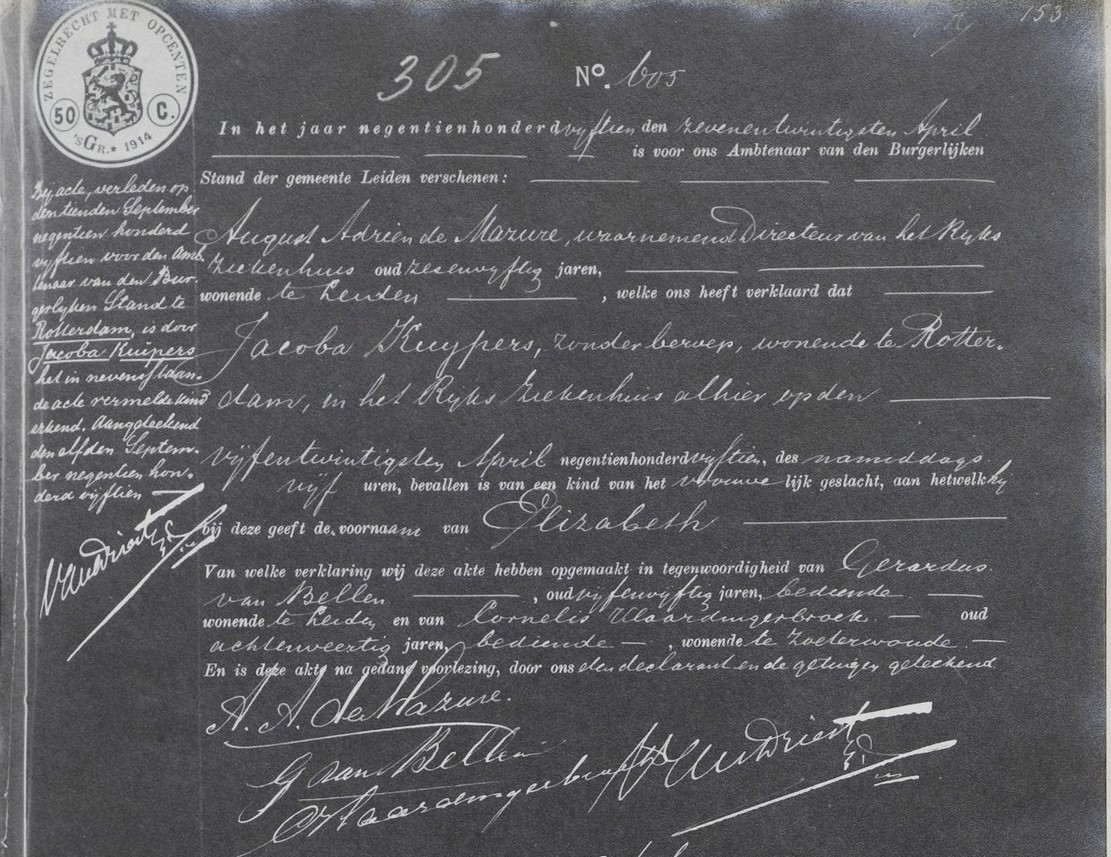 153
ZEGELRECHT MET OPCENTEN
50 C.
'sGR.* 1914
305 No. 605
In het jaar negentienhonderd vijftien den zevenentwintigsten April
is voor ons Ambtenaar van den Burgerlijken
Stand der gemeente Leiden verschenen:
August Adrien de Mazure, waarnemend Directeur van het Ryks
Ziekenhuis oud zesenvyftig jaren,
wonende te Leiden, welke ons heeft verklaard dat
Jacoba Kuypers, zonder beroep, wonende te Rotter-
dam, in het Ryks Ziekenhuis alhier op den
vijfentwintigsten April negentienhonderd vyftien, des namiddags
vijf uren, bevallen is van een kind van het vrouwelijk geslacht, aan hetwelk hy
bij deze geeft de voornaam van Elizabeth
Van welke verklaring wij deze akte hebben opgemaakt in tegenwoordigheid van Gerardus
van Bellen, oud vyfenvyftig jaren, bediende
wonende te Leiden en van Cornelis Vlaardingerbroek oud
achtenveertig jaren, bediende, wonende te Zoeterwoude
En is deze akte na gedane voorlezing, door ons den declarant en de getuigen geteekend
A. A. de Mazure.
G van Bellen
CVlaardingerbroek
Bij acte, verleden op
den tienden September
negentien honderd
vijftien voor den Amb-
tenaar van den Bur-
gerlyken Stand te
Rotterdam, is door
Jacoba Kuipers
het in nevenstaan-
de acte vermelde kind
erkend. Aangeteekend
den elfden Septem-
ber negentien hon-
derd vijftien